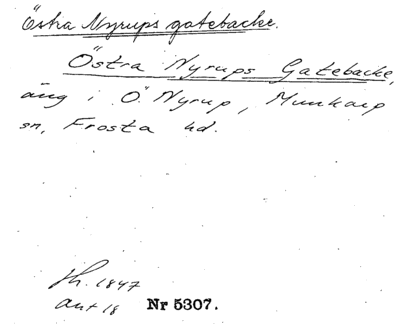 Östra Nyrups gatebacke.
Östra Nyrups Gatebacke,
äng i Ö Nyrup, Munkarp
sn, Frosta hd.
sh. 1847
akt 18 Nr 5307.